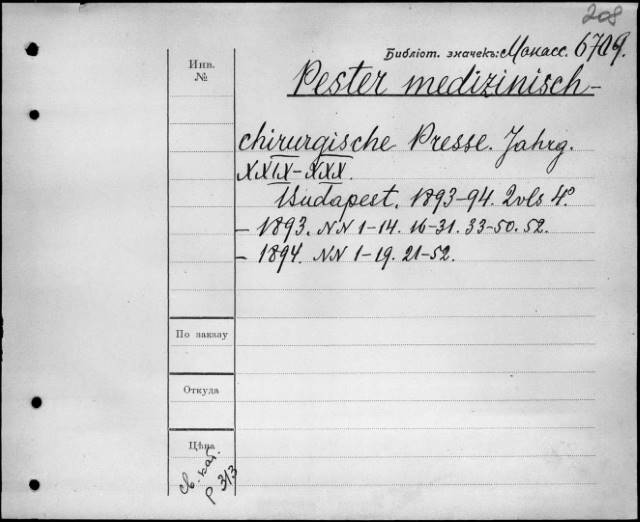 208
Библіот. значекъ: Монасс. 6709.
Инв.
№
Pester medizinisch-
chirurgische Presse. Jahrg.
XXIX-XXX.
Budapest. 1893-94. 2vls 4°
- 1893. NN 1-14. 16-31. 33-50. 52.
- 1894. NN 1-19. 21-52.
По заказу
Откуда
Цѣна
р 313